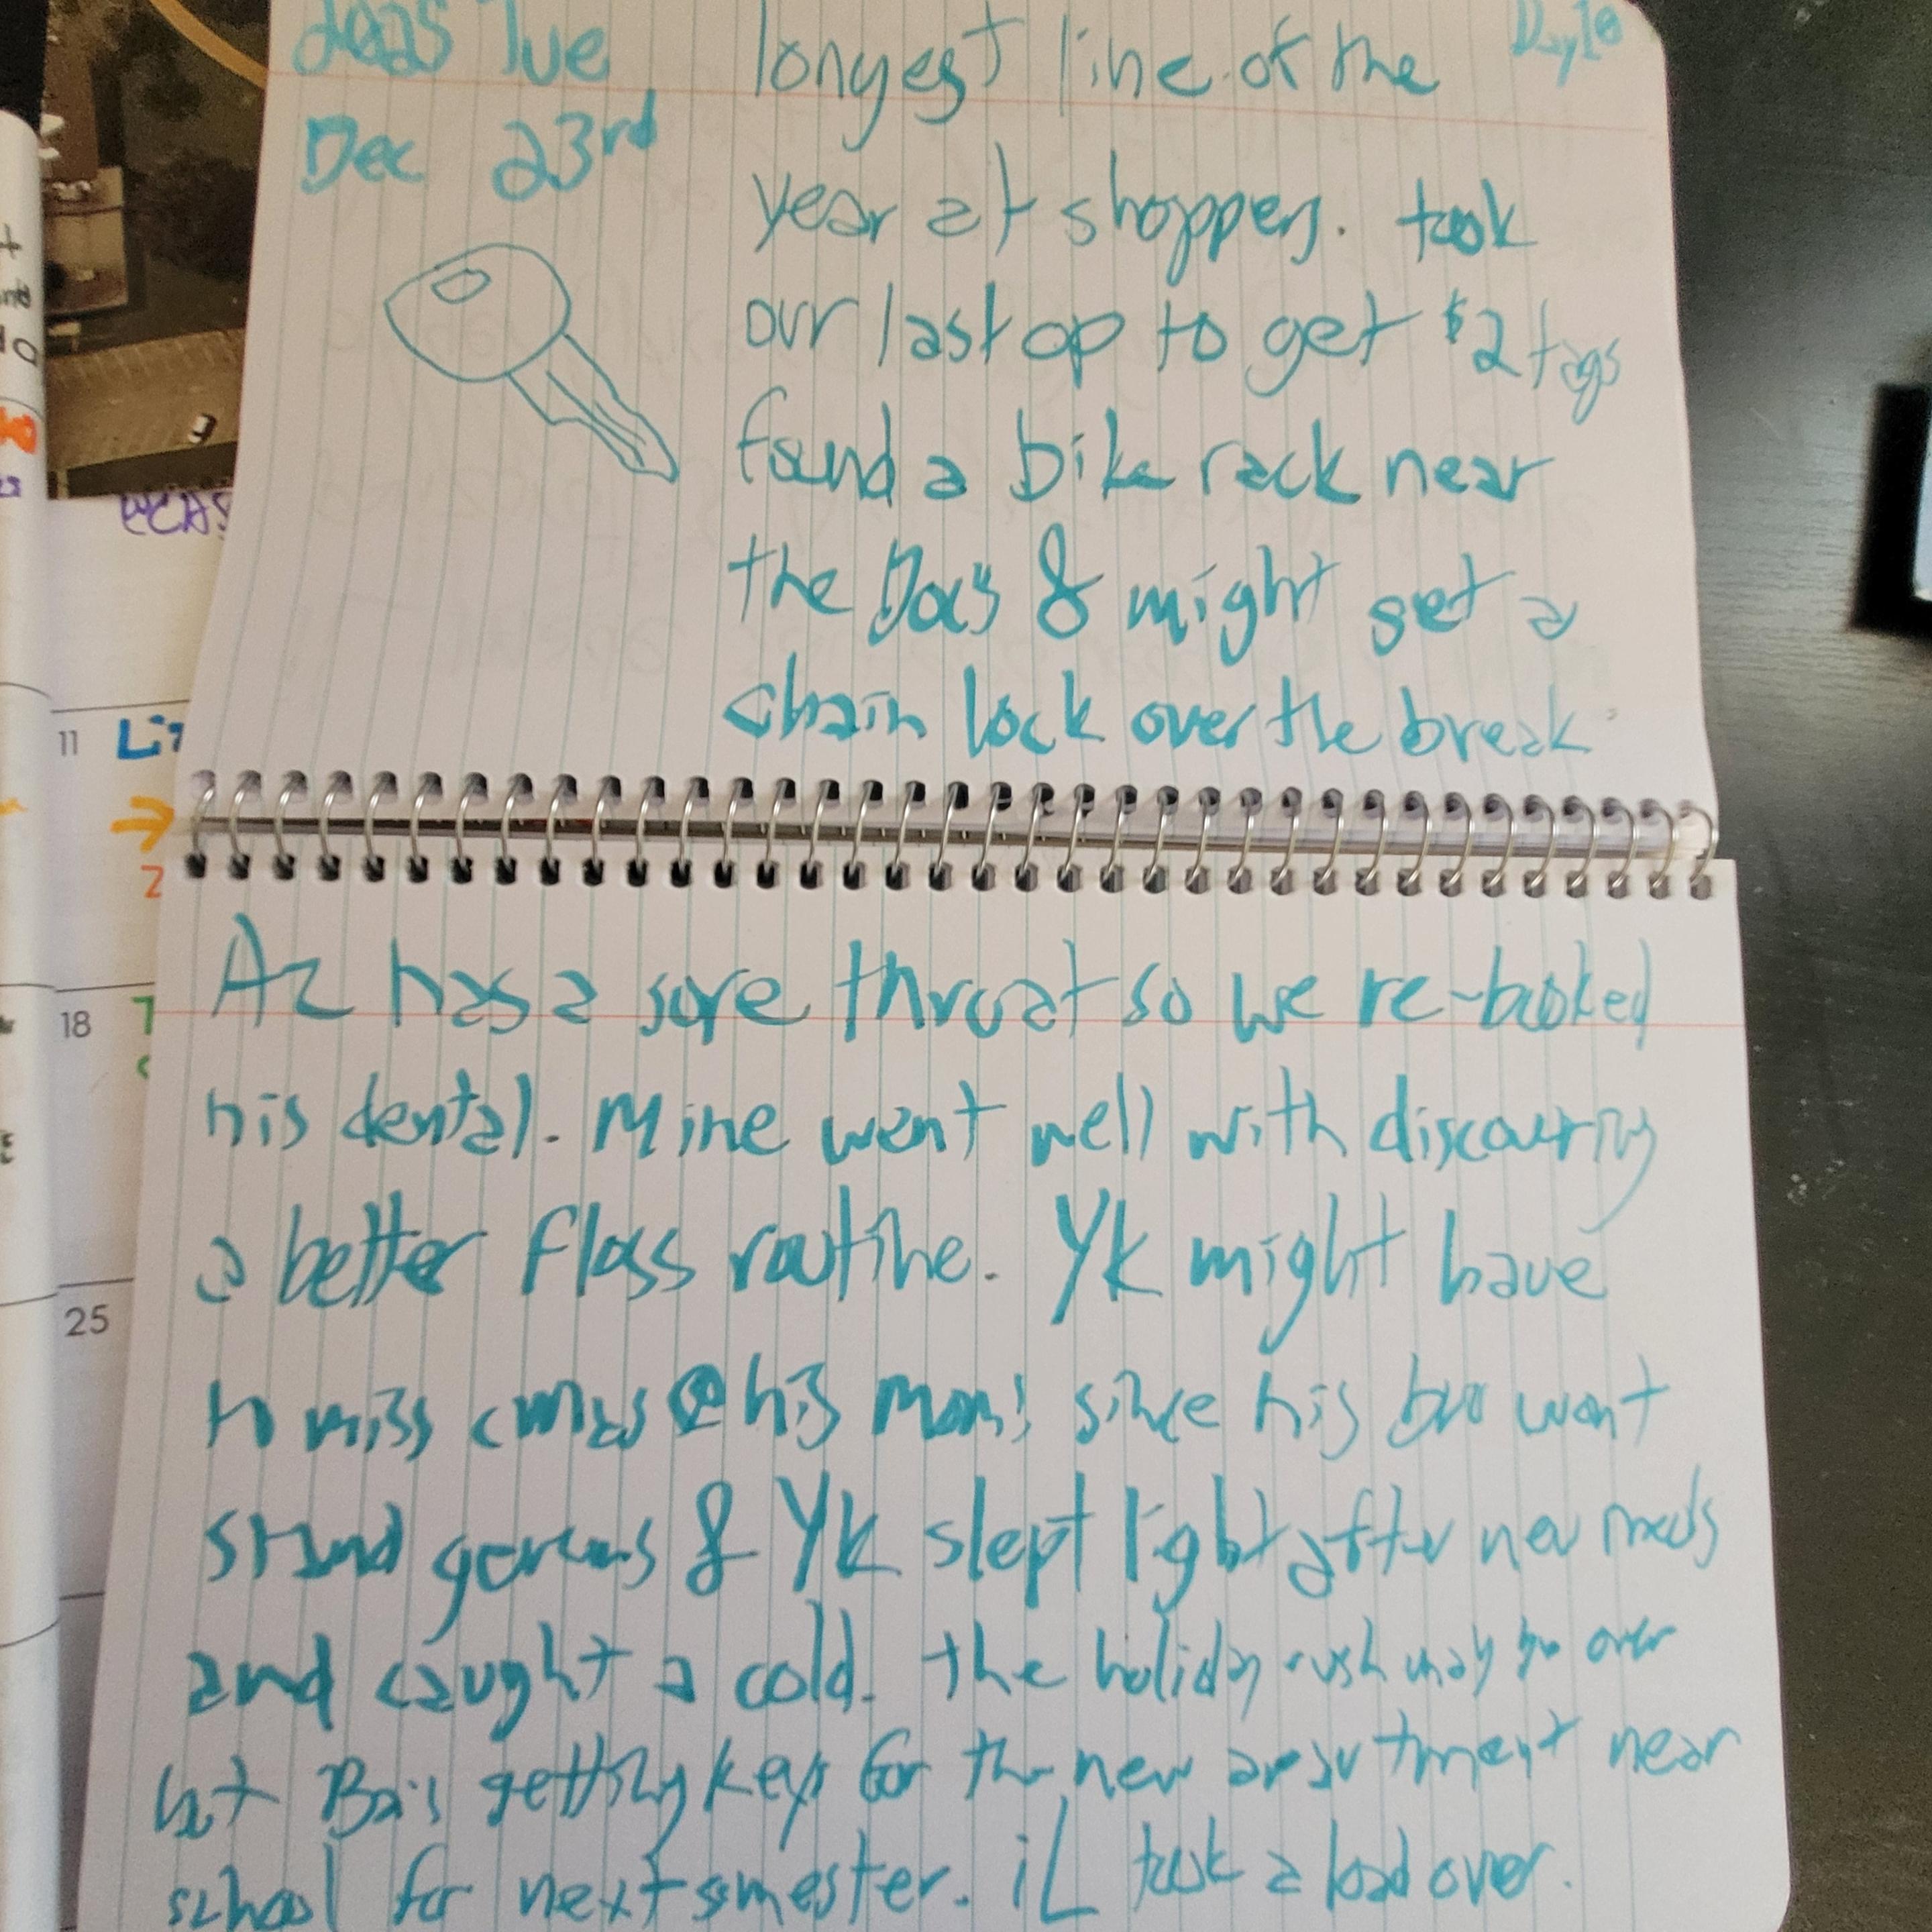 2025 Tue
Dec 23rd
Day 18
longest line of the
year at shoppers. took
our last op to get $2 tags
found a bike rack near
the Doc's & might get a
chain lock over the break
Az has a sore throat so we re-booked
his dental. Mine went well with discovering
a better floss routine. Yk might have
to miss cmas @ his moms since his bro wont
stand germs & Yk slept light after new meds
and caught a cold. the holiday rush may be over
but Ba's getting keys for the new apartment near
school for next semester. iL took a load over.
11 Li
2
18 T
25